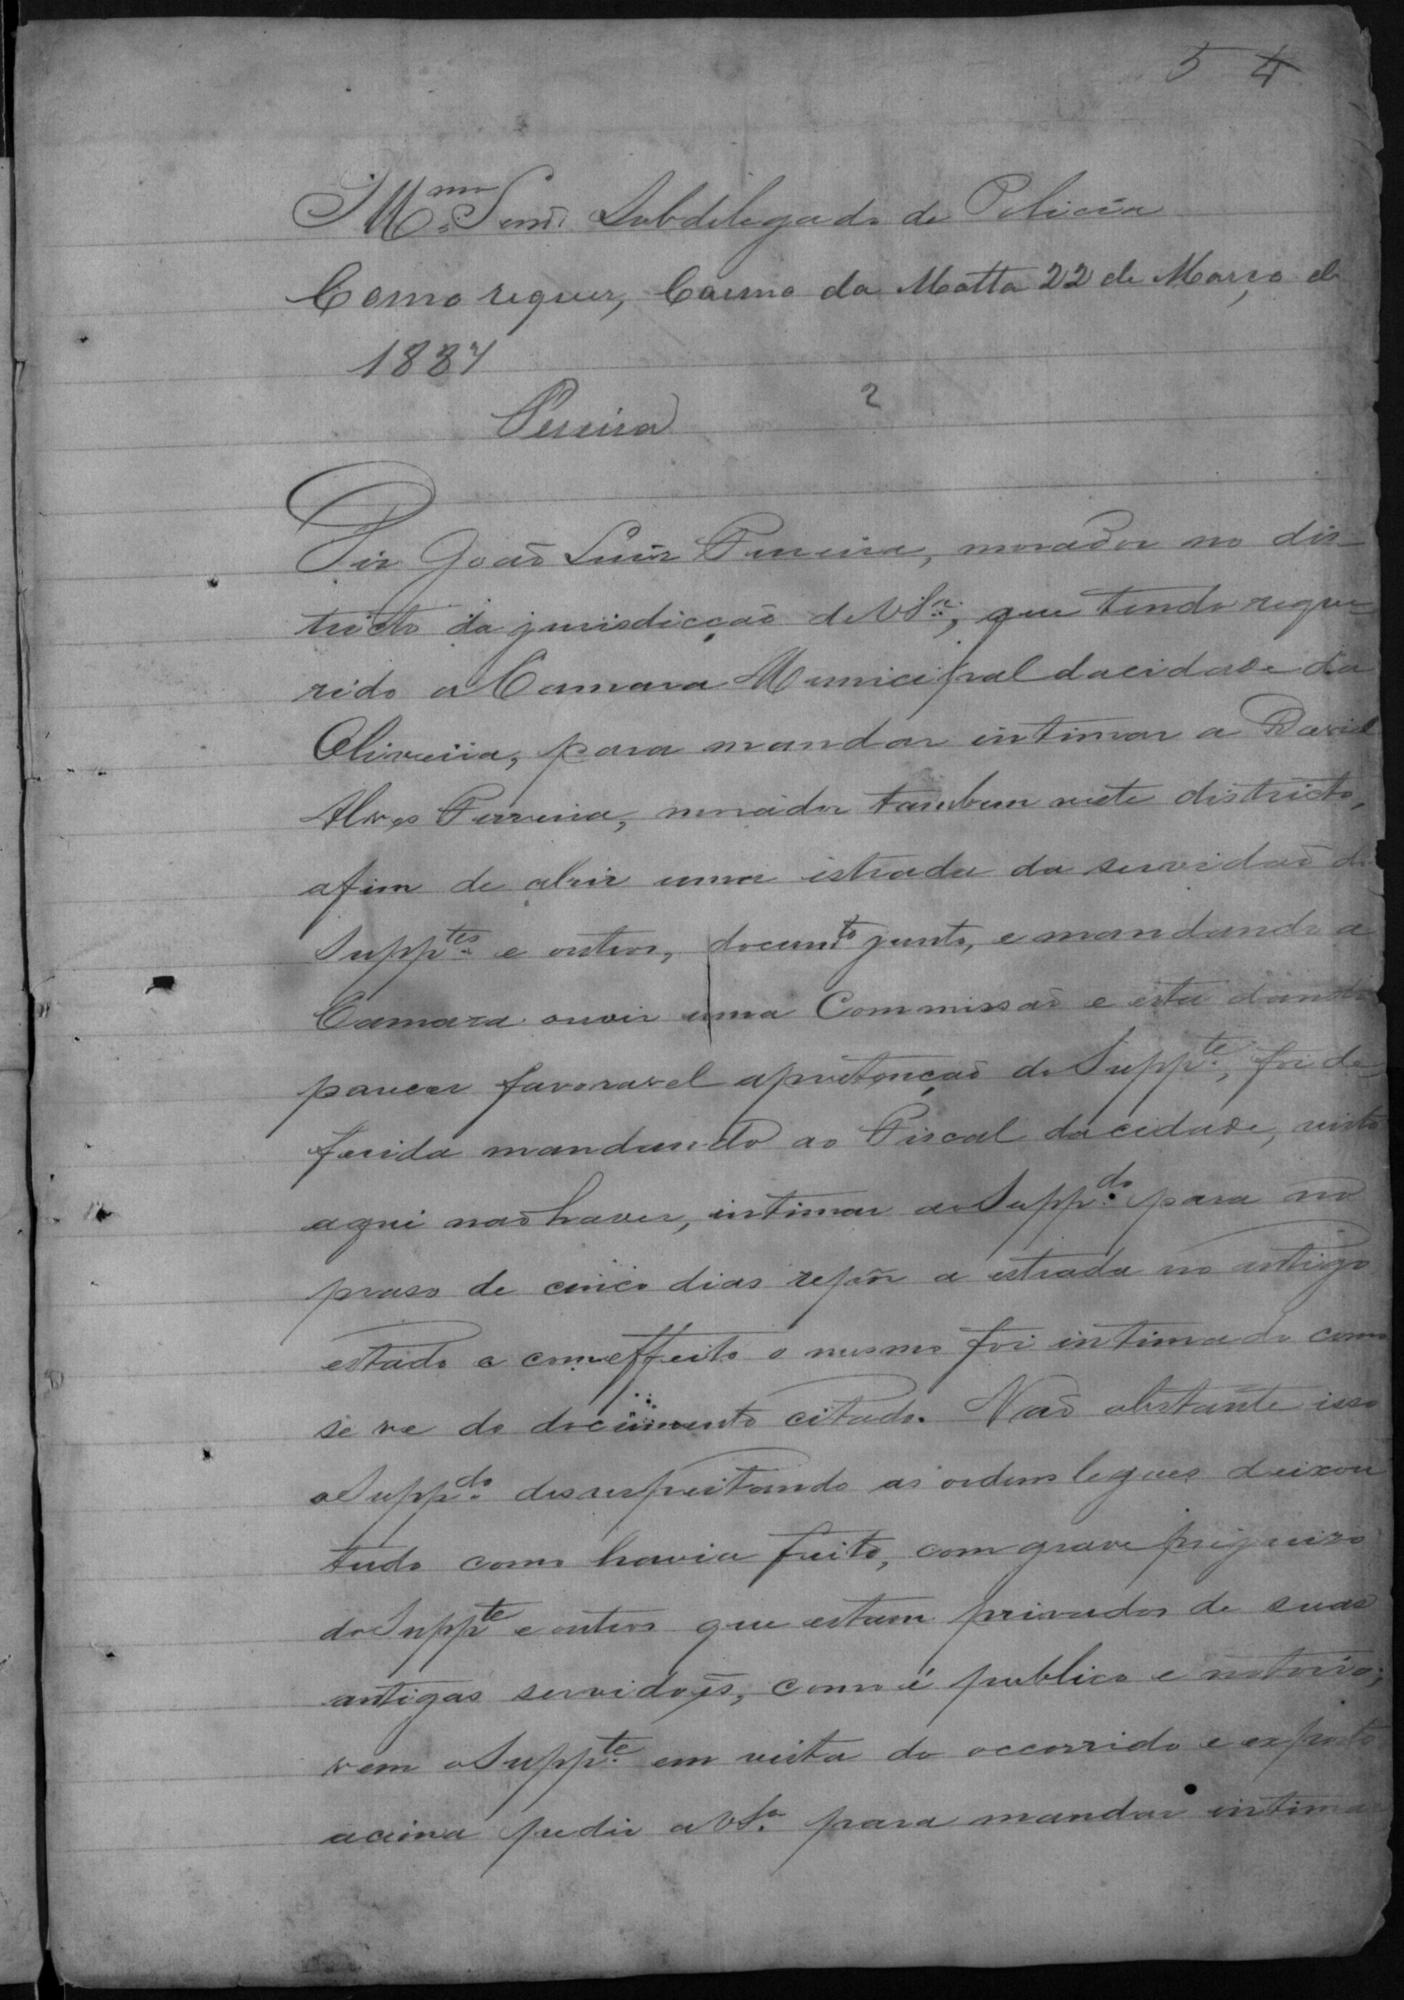 5 4
Illmo. Senr. Subdelegado de Policia
Como requer, Carmo da Matta 22 de Março de
1887
Pereira
Diz João Luiz Ferreira, morador no dis-
tricto da jurisdicção de VSª., que tendo reque-
rido a Camara Municipal da cidade da
Oliveira, para mandar intimar a David
Alves Ferreira, morador tambem neste districto,
afim de abrir uma estrada da servidão do
Supptes. e outros, documto junto, e mandando a
Camara ouvir uma Commissão e esta dando
parecer favoravel apretenção do Suppte., foi de-
ferida mandando ao Fiscal da cidade, visto
aqui não haver, intimar ao Suppdo. para no
praso de cinco dias repôr a estrada no antigo
estado e com effeito o mesmo foi intimado como
se ve do documento citado. Não obstante isso
o Suppdo. desrespeitando as ordens legaes deixou
tudo como havia feito, com grave prejuizo
do Suppte e outros que estam privados de suas
antigas servidoẽs, como é publico e notorio;
vem o Suppte. em vista do occorrido e exposto
acima pedir a VSª. para mandar intimar